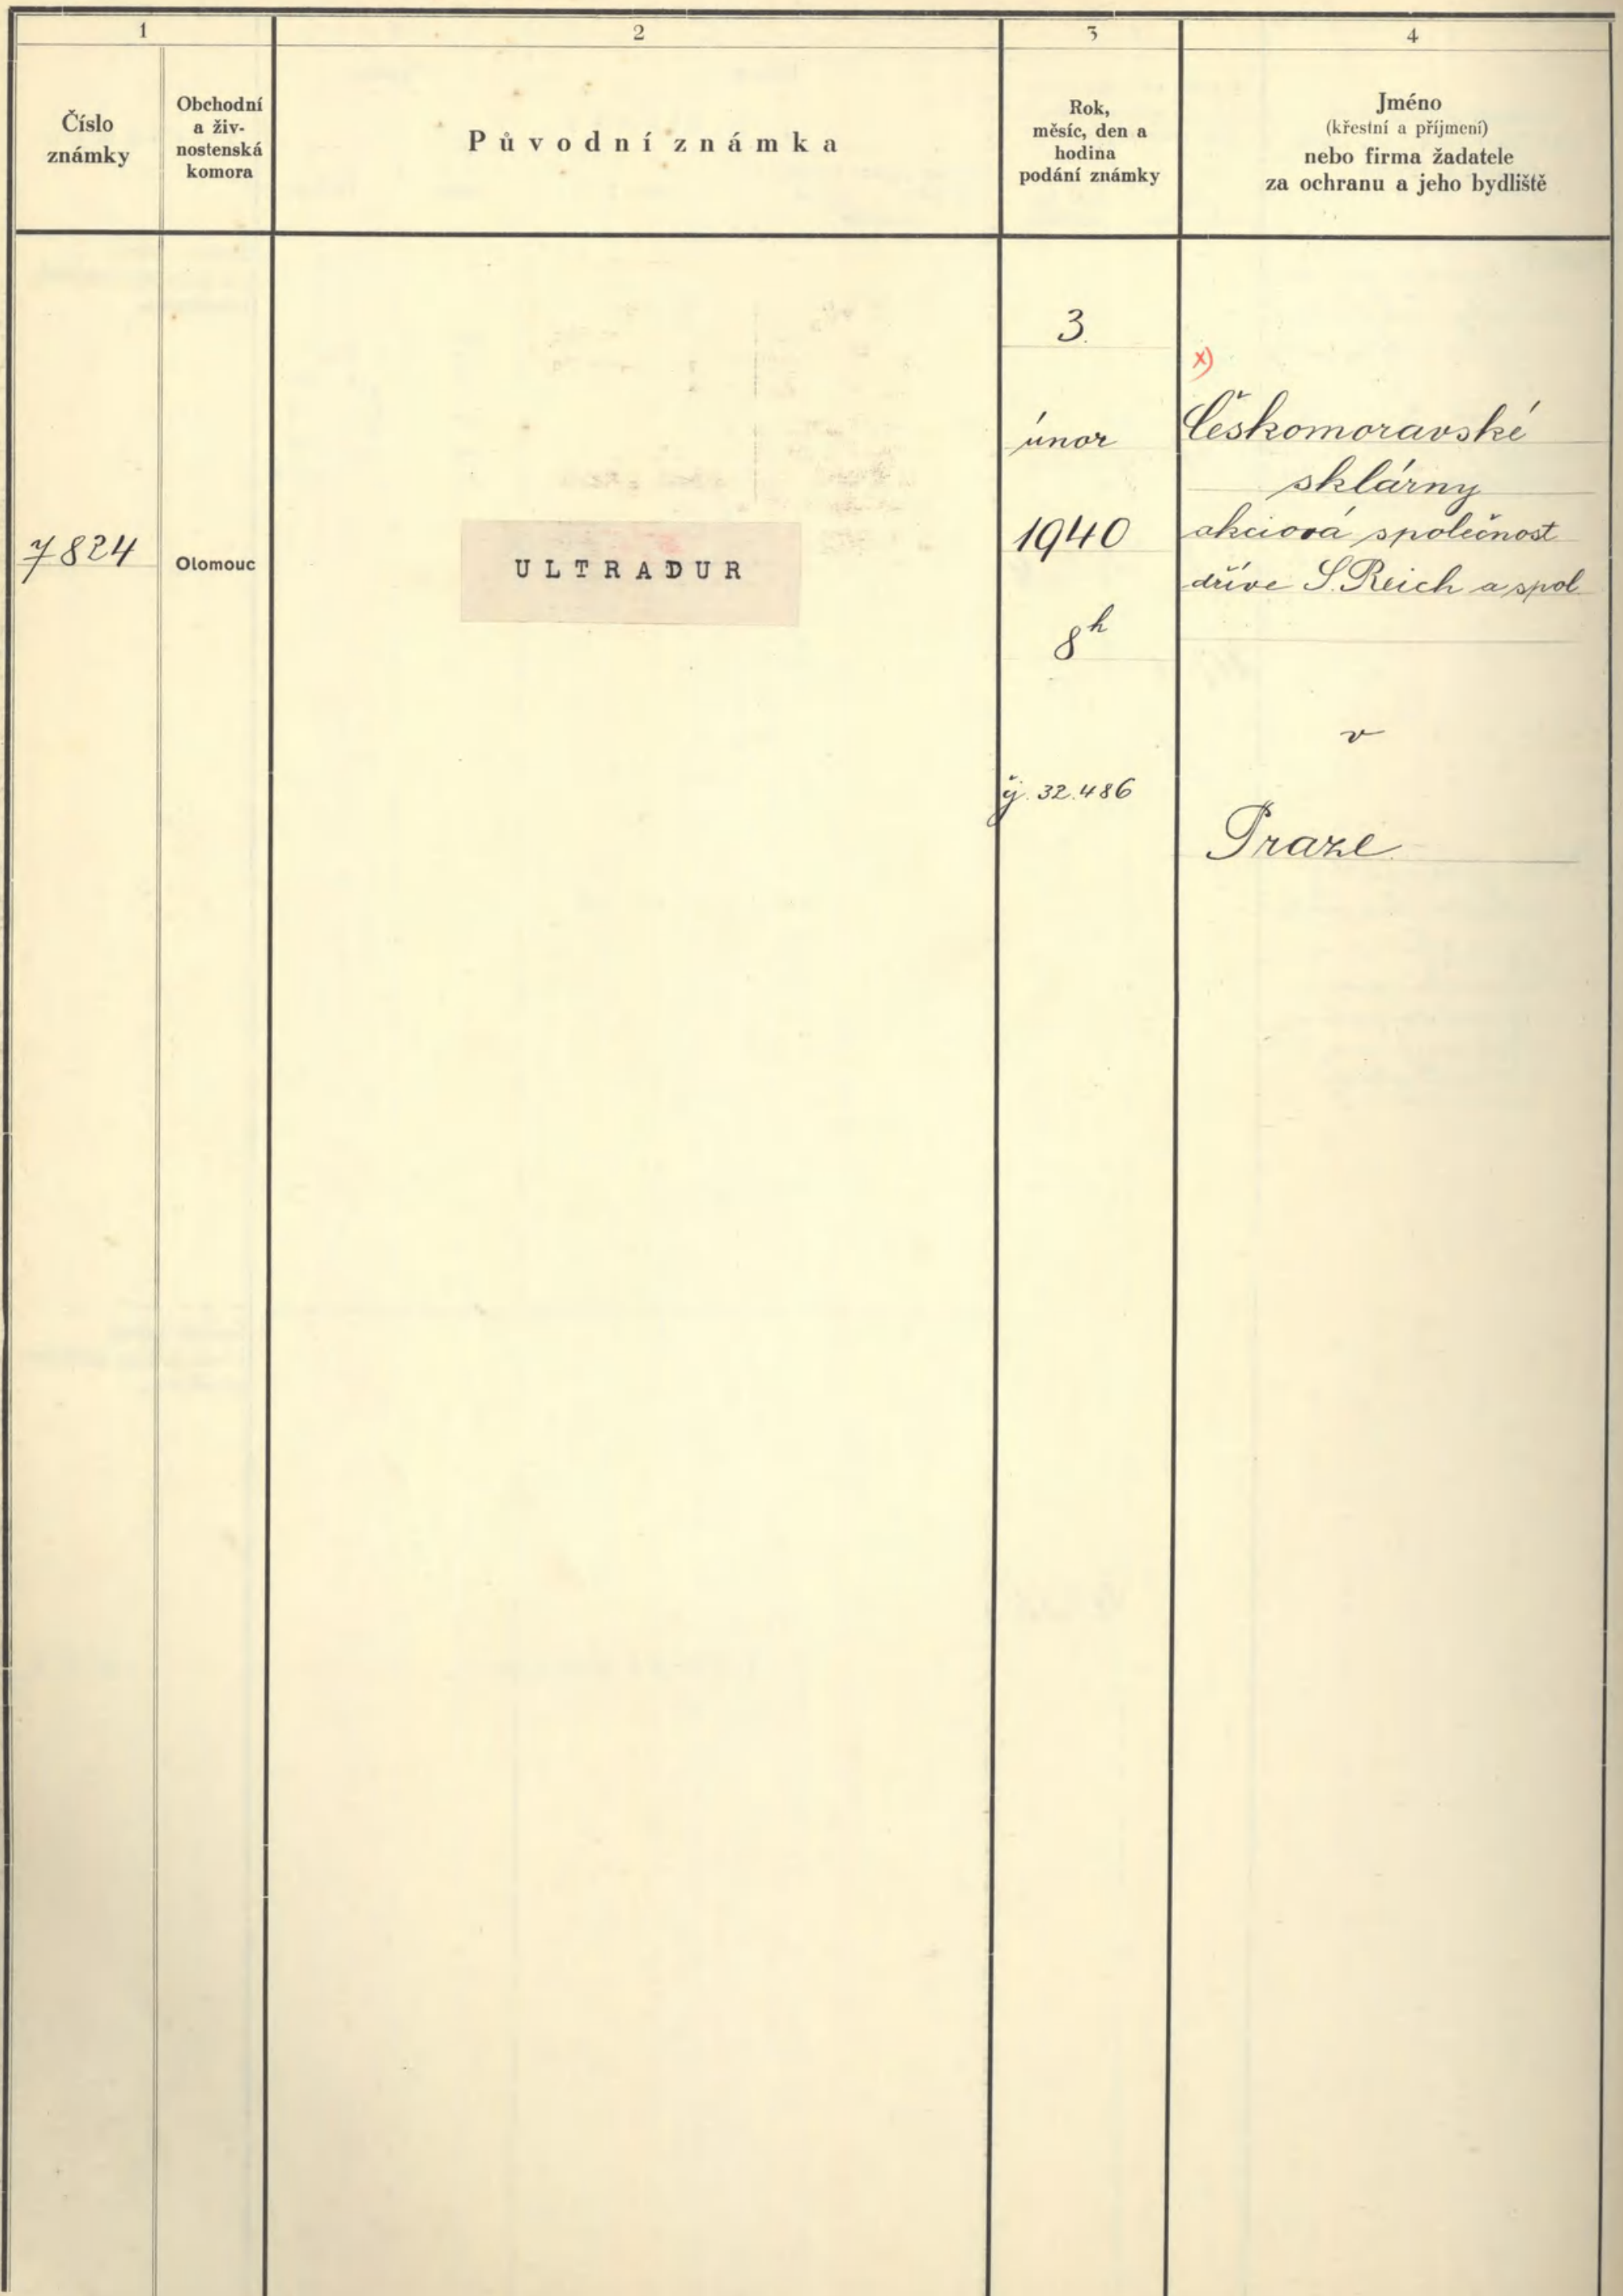 1
2
3
4
Číslo
známky
Obchodní
a živ-
nostenská
komora
Původní známka
Rok,
měsíc, den a
hodina
podání známky
Jméno
(křestní a příjmení)
nebo firma žadatele
za ochranu a jeho bydliště
7824
Olomouc
ULTRADUR
3.
únor
1940
8h
čj. 32.486
x)
Českomoravské
sklárny
akciová společnost
dříve S. Reich a spol.
v
Praze